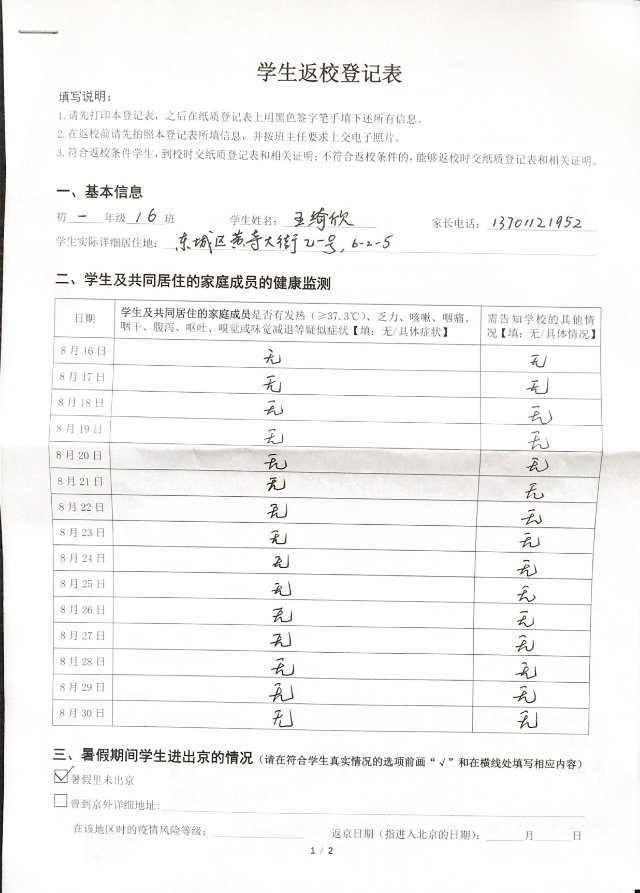 学生返校登记表
填写说明:
1.请先打印本登记表，之后在纸质登记表上用黑色签字笔手填下述所有信息。
2.在返校前请先拍照本登记表所填信息，并按班主任要求上交电子照片。
3.符合返校条件学生，到校时交纸质登记表和相关证明；不符合返校条件的，能够返校时交纸质登记表和相关证明。
一、基本信息
初 一 年级 16 班 学生姓名: 王绮欣 家长电话: 13701121952
学生实际详细居住地: 东城区黄寺大街21号，6-2-5
二、学生及共同居住的家庭成员的健康监测
日期 学生及共同居住的家庭成员是否有发热（≥37.3℃）、乏力、咳嗽、咽痛、咽干、腹泻、呕吐、嗅觉或味觉减退等疑似症状【填：无/具体症状】 需告知学校的其他情况【填：无/具体情况】
8月16日 无 无
8月17日 无 无
8月18日 无 无
8月19日 无 无
8月20日 无 无
8月21日 无 无
8月22日 无 无
8月23日 无 无
8月24日 无 无
8月25日 无 无
8月26日 无 无
8月27日 无 无
8月28日 无 无
8月29日 无 无
8月30日 无 无
三、暑假期间学生进出京的情况（请在符合学生真实情况的选项前画“√”和在横线处填写相应内容）
☑暑假里未出京
□曾到京外详细地址:
在该地区时的疫情风险等级: 返京日期（指进入北京的日期）: 月 日
1 / 2